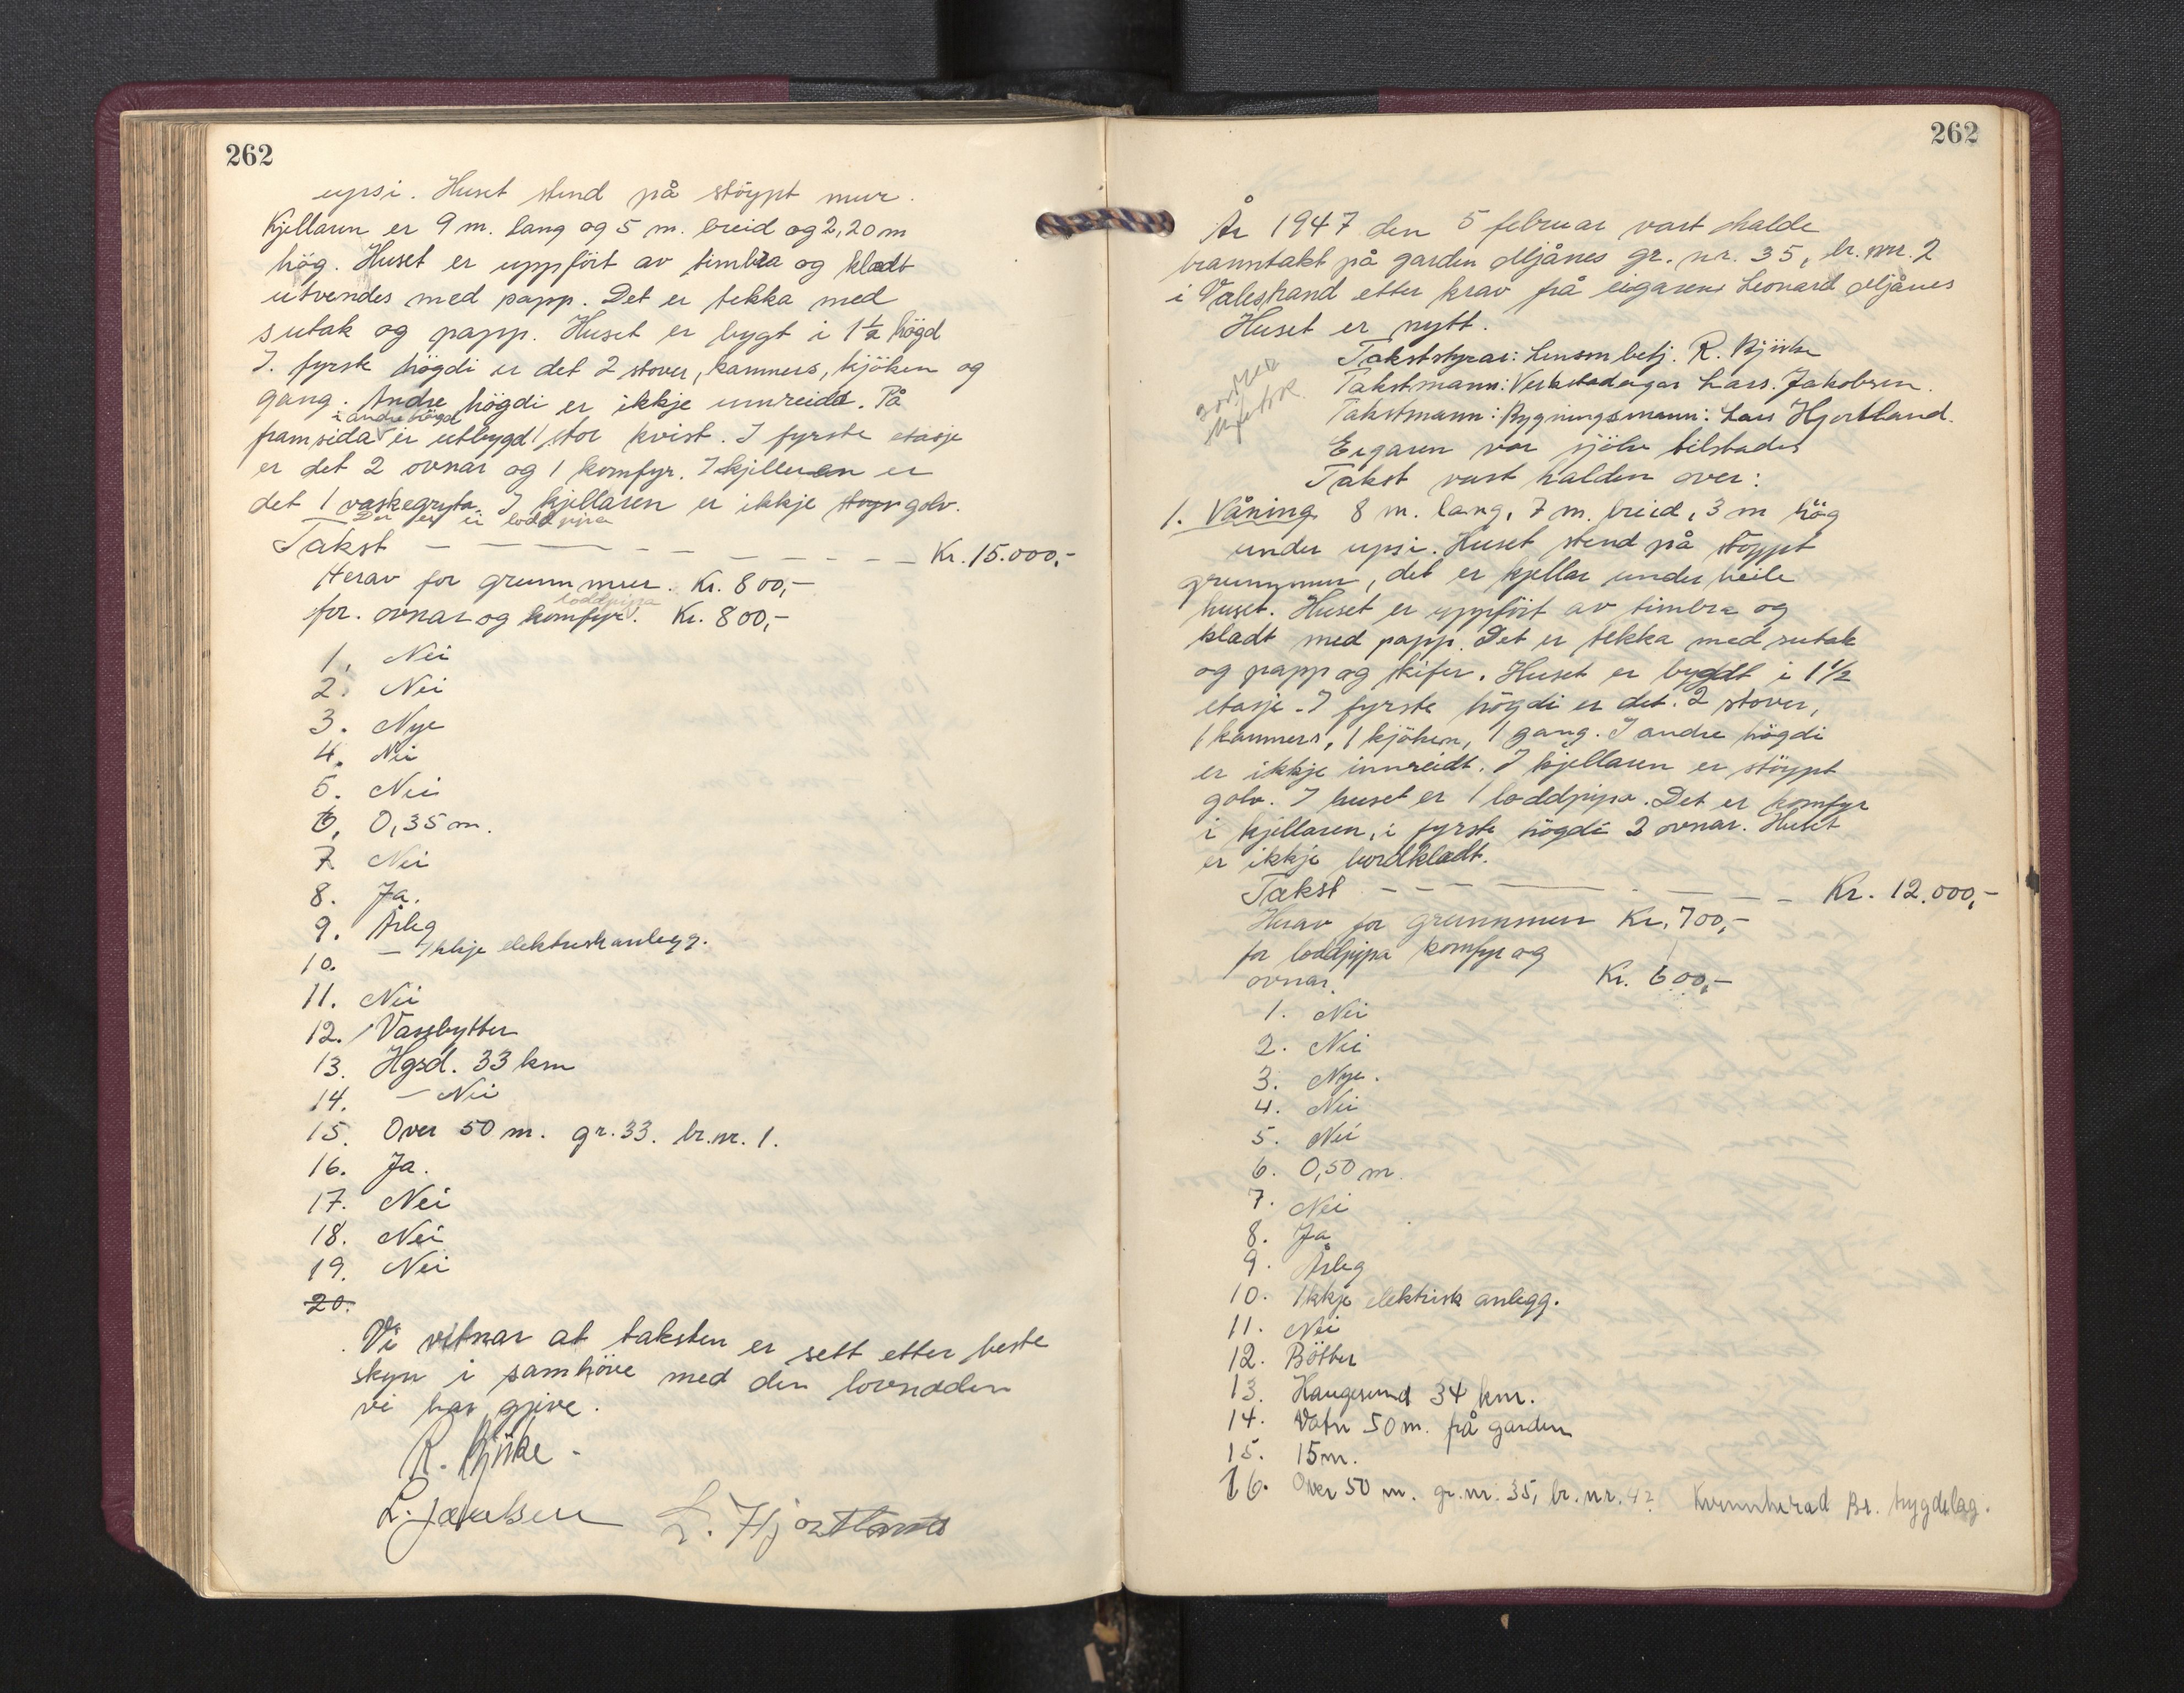 262
upsi. Huset stend på støypt mur.
Kjellaren er 9 m. lang og 5 m. breid og 2,20 m
høg. Huset er uppført av timbra og kledt
utvendes med papp. Det er tekka med
sutak og papp. Huset er bygt i 1½ høgd
I. fyrste högdi er det 2 stover, kammers, kjöken og
gang. Andre högdi er ikkje innreida. På
i andre högd
framsida er utbygd 1 stor kvist. I fyrste etasje
er det 2 ovnar og 1 komfyr. I kjelleren er
det 1 vaskegryta. I kjellaren er ikkje støyr golv.
Der er ei loddpipa
Takst — — — — — — — — Kr. 15.000,-
Herav for grunnmur. Kr. 800,-
loddpipa
for. ovnar og komfyr. Kr. 800,-
1. Nei
2. Nei
3. Nye
4. Nei
5. Nei
6. 0,35 m.
7. Nei
8. Ja.
9. Årleg
10. — Ikkje elektrisk anlegg.
11. Nei
12. Vassbytter
13. Hgsd. 33 km
14. — Nei
15. Over 50 m. gr. 33. br.nr. 1.
16. Ja.
17. Nei
18. Nei
19. Nei
20.
Vi vitnar at taksten er sett etter beste
skyn i samhöve med den lovnaden
vi har gjeve.
R. Bjürke -
L. Jakobsen L. Hjortland
262
År 1947 den 5 februar vart halde
branntakst på garden Mjånes gr. nr. 35, br. nr. 2
i Valestrand etter krav frå eigaren Leonard Mjånes
Huset er nytt.
Takststyrar: Lensm betj. R. Bjürke
Takstmann: Verkstadeigar Lars. Jakobsen.
Takstmann: Bygningsmann: Lars Hjortland.
Eigaren var sjölv tilstades
Takst vart halden over:
1. Våning 8 m. lang, 7 m. breid, 3 m høg
under upsi. Huset stend på støypt
grunnmur, det er kjellar under heile
huset. Huset er uppfört av timbra og
kledt med papp. Det er tekka med sutak
og papp og skifer. Huset er bygdt i 1½
etasje. I fyrste högdi er det. 2 stover,
1 kammers, 1 kjöken, 1 gang. I andre högdi
er ikkje innreidt. I kjellaren er støypt
golv. I huset er 1 loddpipa. Det er komfyr
i kjellaren, i fyrste högdi 2 ovnar. Huset
er ikkje bordkledt.
Takst — — — — — — — Kr. 12.000,-
Herav for grunnmur Kr. 700,-
for loddpipa komfyr og
ovnar. Kr. 600,-
1. Nei
2. Nei
3. Nye.
4. Nei
5. Nei
6. 0,50 m.
7. Nei
8. Ja
9. Årleg
10. Ikkje elektrisk anlegg.
11. Nei
12. Bötter
13. Haugesund 34 km.
14. Vatn 50 m. på garden
15. 15 m.
16. Over 50 m. gr.nr. 35, br.nr. 42 Kvinnherad Br. bygdelag.